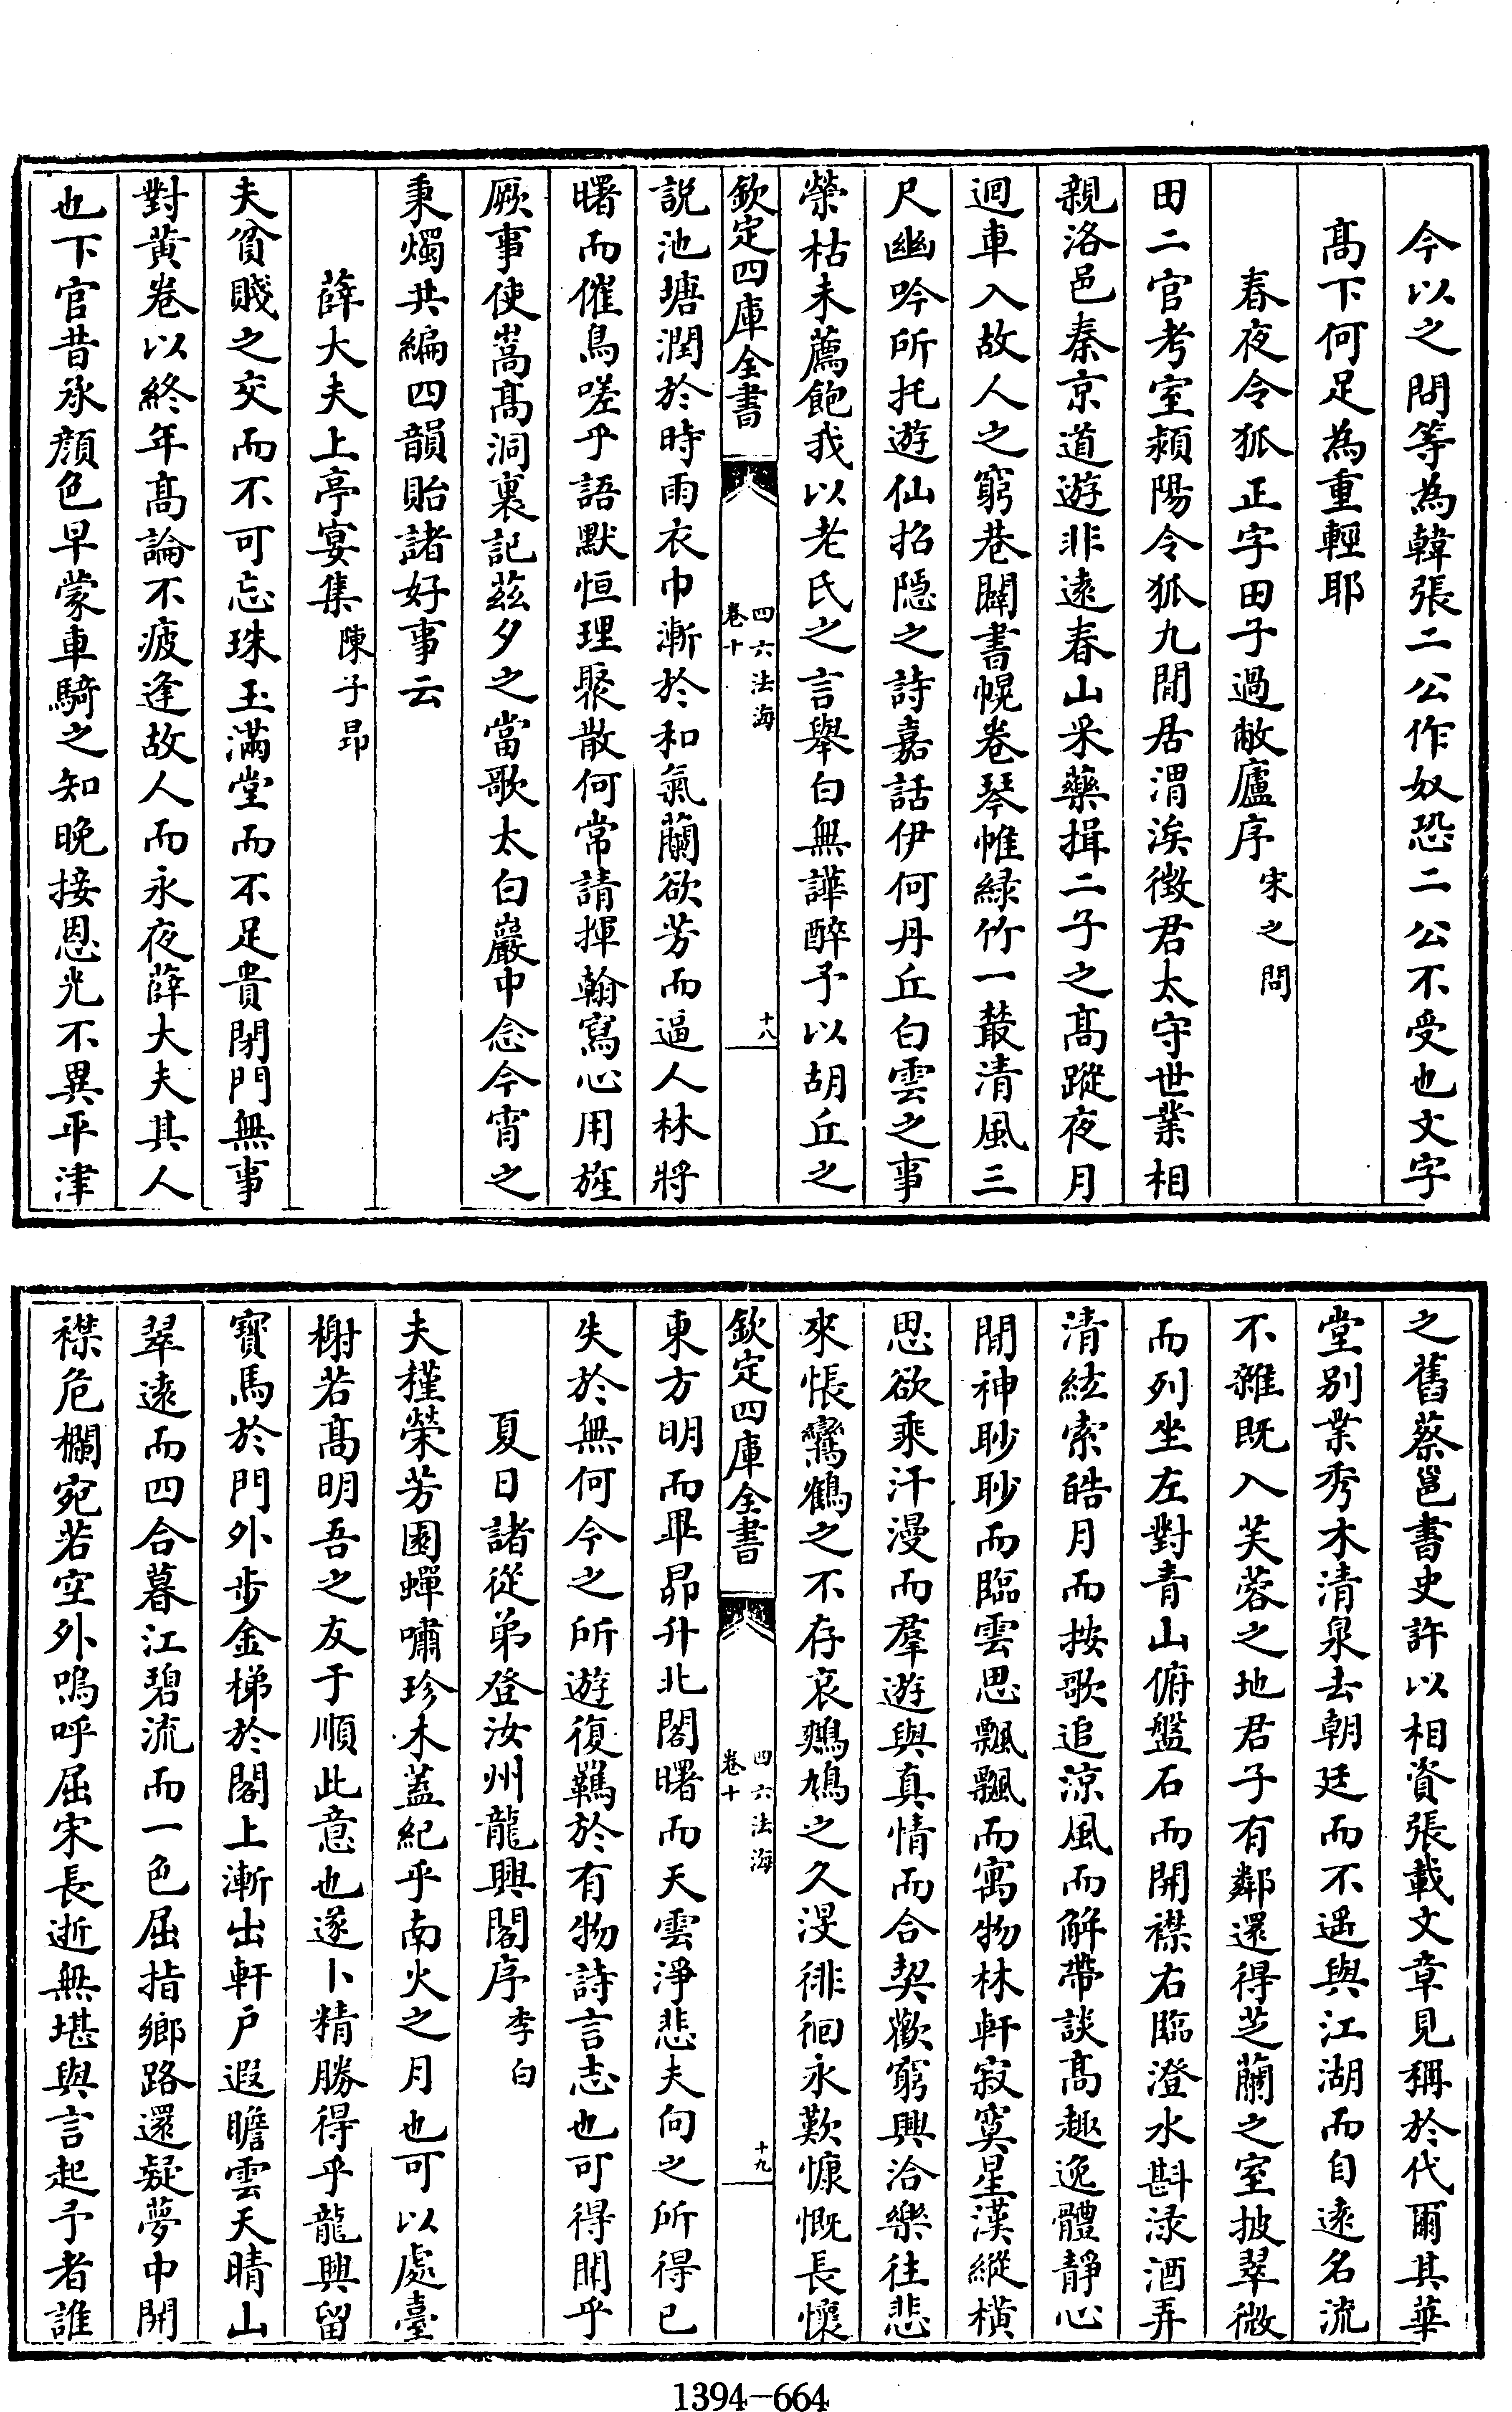 今以之問等為韓張二公作奴恐二公不受也文字
高下何足為重輕耶
春夜令狐正字田子過敝廬序宋之問
田二官考室潁陽令狐九閒居渭涘徴君太守世業相
親洛邑秦京道遊非遠春山采藥揖二子之高蹤夜月
迴車入故人之窮巷闢書幌卷琴帷緑竹一叢清風三
尺幽吟所托遊仙招隠之詩嘉話伊何丹丘白雲之事
榮枯未薦飽我以老氏之言舉白無譁醉予以胡丘之
欽定四庫全書 四六法海 卷十 十八
説池塘潤於時雨衣巾漸於和氣蘭欲芳而逼人林將
曙而催鳥嗟乎語默恒理聚散何常請揮翰寫心用旌
厥事使嵩高洞裏記茲夕之當歌太白巖中念今宵之
秉燭共編四韻貽諸好事云
薛大夫上亭宴集陳子昂
夫貧賤之交而不可忘珠玉滿堂而不足貴閉門無事
對黄卷以終年高論不疲逢故人而永夜薛大夫其人
也下官昔承顔色早蒙車騎之知晚接恩光不異平津
之舊蔡邕書史許以相資張載文章見稱於代爾其華
堂别業秀木清泉去朝廷而不遥與江湖而自遠名流
不雜既入芙蓉之地君子有鄰還得芝蘭之室披翠微
而列坐左對青山俯盤石而開襟右臨澄水斟淥酒弄
清絃索皓月而按歌追涼風而解帶談高趣逸體靜心
閒神眇眇而臨雲思飄飄而寓物林軒寂寞星漢縱横
思欲乘汗漫而羣遊與真情而合契歡窮興洽樂往悲
來悵鸞鶴之不存哀鵷鳩之久没徘徊永歎慷慨長懷
欽定四庫全書 四六法海 卷十 十九
東方明而畢昴升北閣曙而天雲淨悲夫向之所得已
失於無何今之所遊復羈於有物詩言志也可得聞乎
夏日諸從弟登汝州龍興閣序李白
夫槿榮芳園蟬嘯珍木蓋紀乎南火之月也可以處臺
榭若高明吾之友于順此意也遂卜精勝得乎龍興留
寳馬於門外步金梯於閣上漸出軒户遐瞻雲天晴山
翠遠而四合暮江碧流而一色屈指鄉路還疑夢中開
襟危欄宛若空外嗚呼屈宋長逝無堪與言起予者誰
1394—664